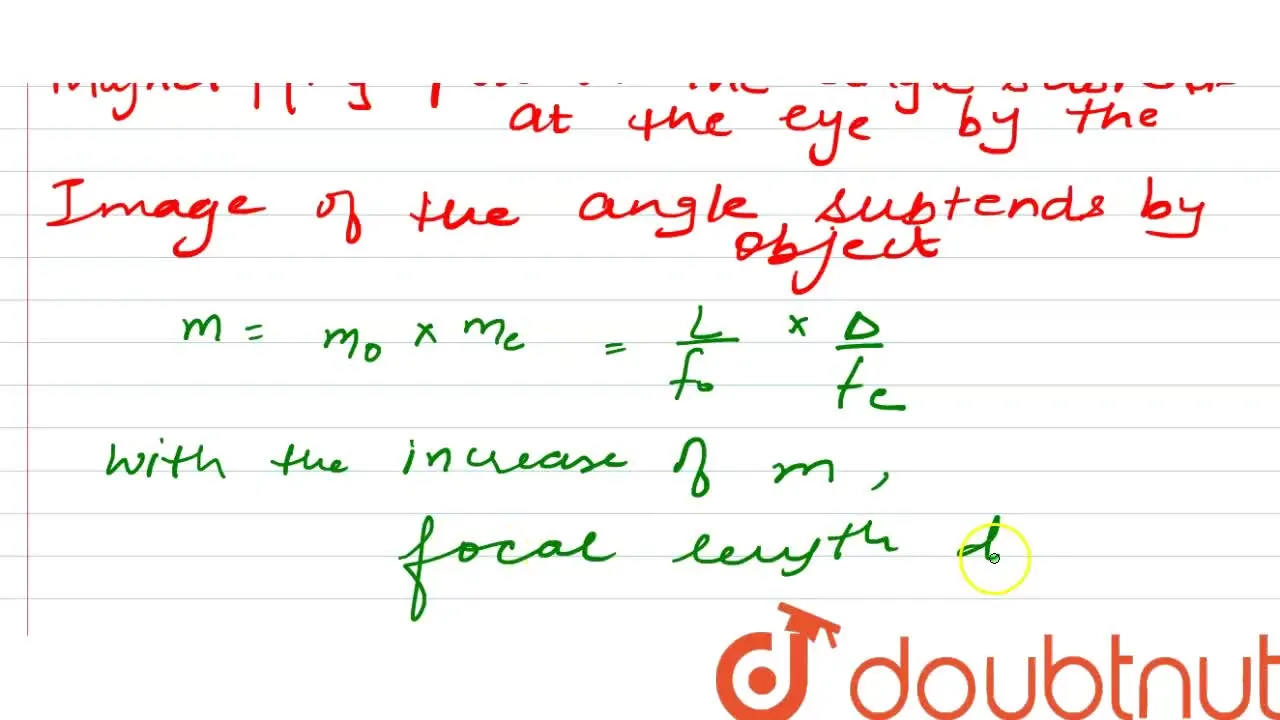 the angle
at the eye by the
Image of the angle subtends by
object
m = mo × me = L/fo × D/fe
with the increase of m,
focal length d
doubtnut